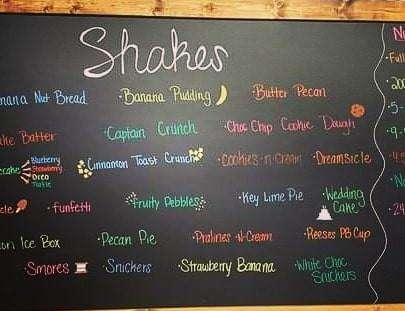 Shakes
nana Nut Bread · Banana Pudding · Butter Pecan
ake Batter · Captain Crunch · Choc Chip Cookie Dough
ecake Blueberry
Strawberry
Oreo
Turtle
· Cinnamon Toast Crunch · Cookies-n-Cream · Dreamsicle
cle · Funfetti · Fruity Pebbles · Key Lime Pie · Wedding
Cake
ori Ice Box · Pecan Pie · Pralines-N-Cream · Reeses PB Cup
· Smores · Snickers · Strawberry Banana · White Choc
Snickers
Full